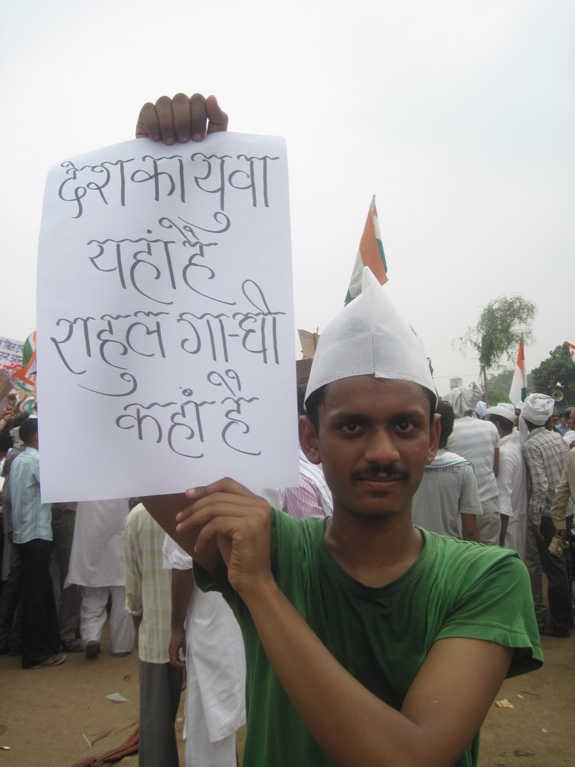 देश का युवा
यहां है
राहुल गान्धी
कहां है